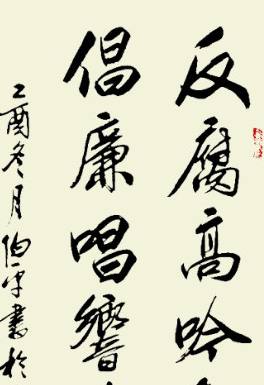 反腐高吟
倡廉唱響
乙酉冬月伯平書於